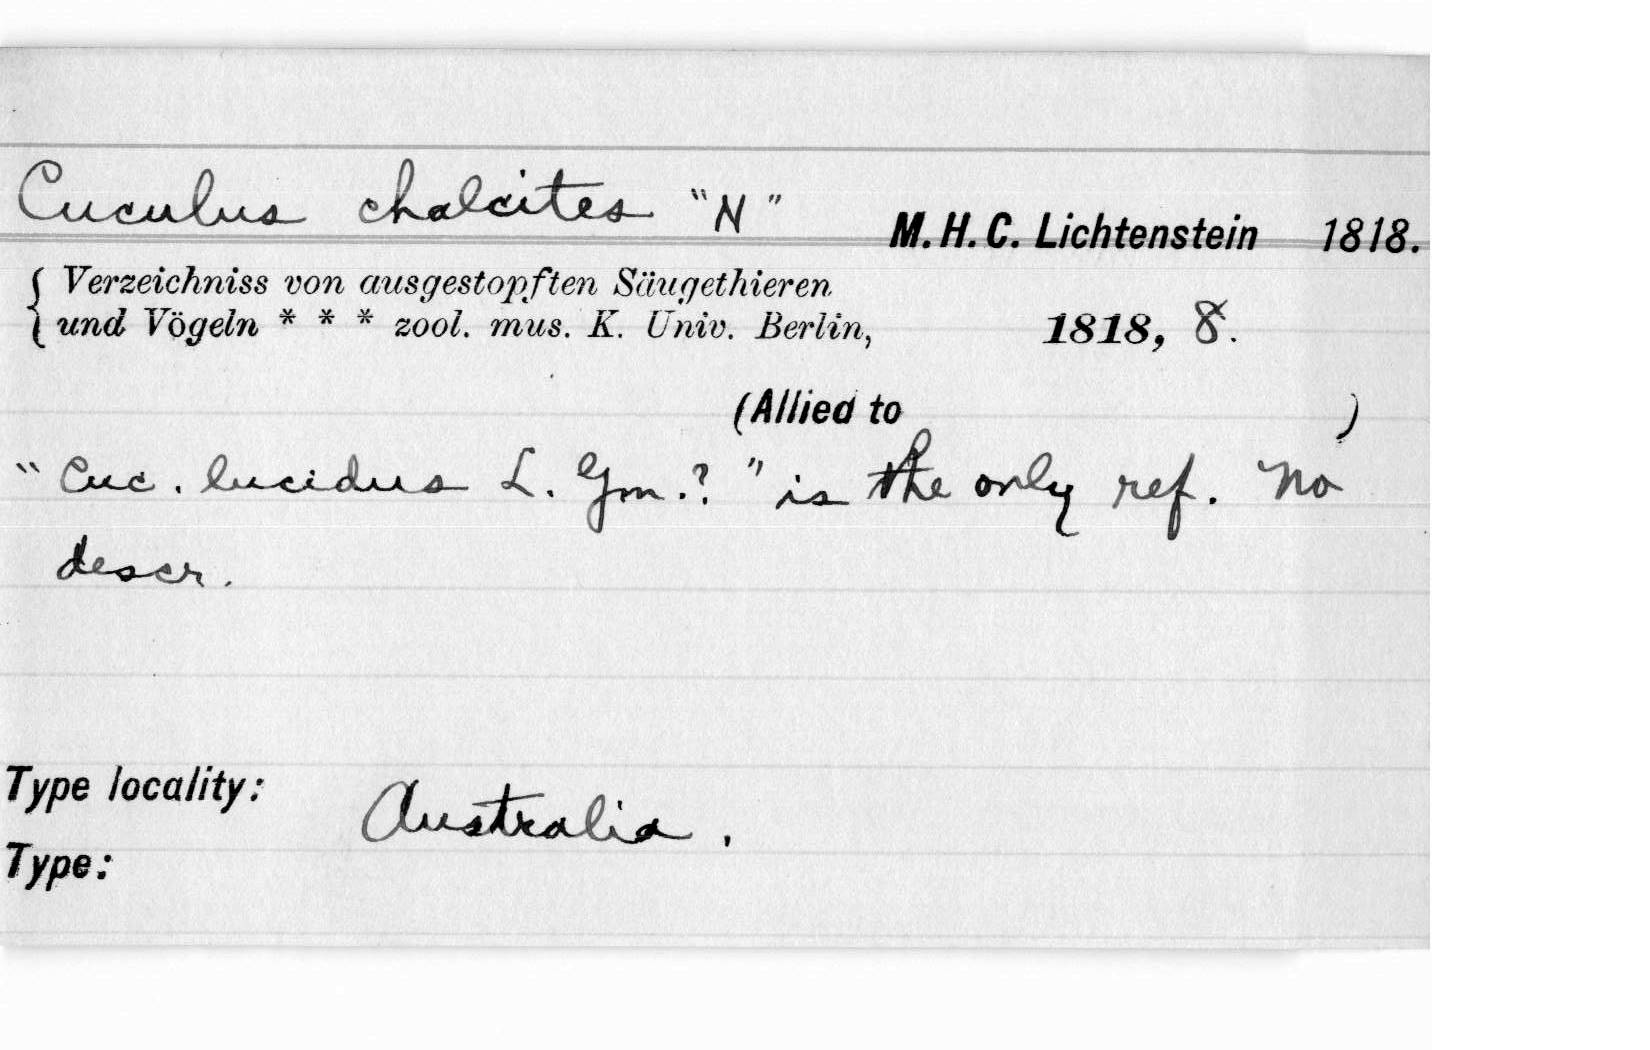 Cuculus chalcites "N" M. H. C. Lichtenstein 1818.
{ Verzeichniss von ausgestopften Säugethieren
und Vögeln * * * zool. mus. K. Univ. Berlin, 1818, 8.
(Allied to )
"Cuc. lucidus L. Gm.?" is the only ref. No
descr.
Type locality: Australia.
Type: